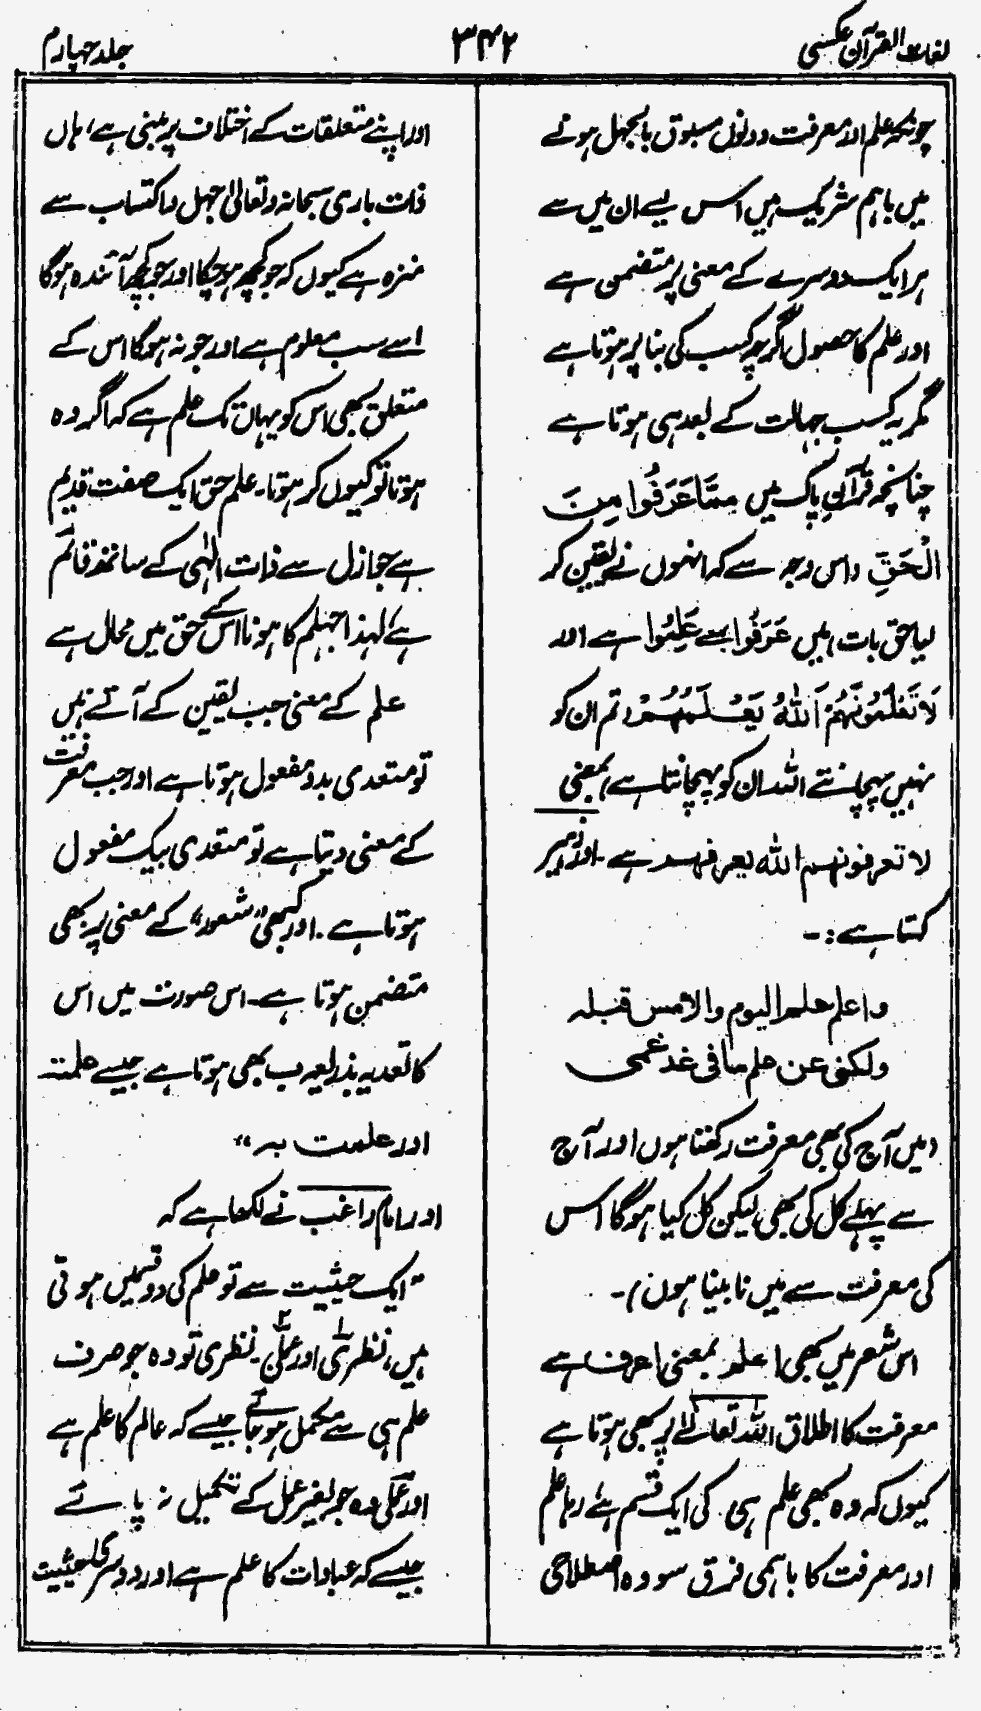 لغات القرآن عکسی
۳۴۲
جلد چہارم
چونکہ علم اور معرفت دونوں مسبوق بالجہل ہونے
میں باہم شریک ہیں اس لیے ان میں سے
ہر ایک دوسرے کے معنی پر متضمن ہے
اور علم کا حصول اگرچہ کسب کی بنا پر ہوتا ہے
مگر یہ کسب جہالت کے بعد ہی ہوتا ہے
چنانچہ قرآن پاک میں مِمَّا عَرَفُوا مِنَ
الْحَقِّ (اس وجہ سے کہ انہوں نے یقین کر
لیا حق بات) میں عَرَفُوا بمعنے عَلِمُوا ہے اور
لَا تَعْلَمُونَهُمْ اَللّٰهُ يَعْلَمُهُمْ (تم ان کو
نہیں پہچانتے اللہ ان کو پہچانتا ہے) بمعنی
لا تعرفونہم اللہ یعرفہم ہے۔ اور زہیر
کہتا ہے :۔
واعلم علم الیوم والامس قبلہ
ولکننی عن علم ما فی غد عمی
(میں آج کی بھی معرفت رکھتا ہوں اور آج
سے پہلے کل کی بھی لیکن کل کیا ہوگا اس
کی معرفت سے میں نابینا ہوں)۔
اس شعر میں بھی اعلم بمعنی اعرف ہے
معرفت کا اطلاق اللہ تعالےٰ پر بھی ہوتا ہے
کیوں کہ وہ بھی علم ہی کی ایک قسم ہے، رہا علم
اور معرفت کا باہمی فرق سو وہ اصطلاحی
اور اپنے متعلقات کے اختلاف پر مبنی ہے، ہاں
ذات باری سبحانہ و تعالیٰ جہل و اکتساب سے
منزہ ہے کیوں کہ جو کچھ ہو چکا اور جو کچھ آئندہ ہوگا
اسے سب معلوم ہے اور جو نہ ہوگا اس کے
متعلق بھی اس کو یہاں تک علم ہے کہ اگر وہ
ہوتا تو کیوں کر ہوتا۔ علم حق ایک صفت قدیم
ہے جو ازل سے ذات الٰہی کے ساتھ قائم
ہے، لہذا جہل کا ہونا اس کے حق میں محال ہے
علم کے معنی جب یقین کے آتے ہیں
تو متعدی بدو مفعول ہوتا ہے اور جب معرفت
کے معنی دیتا ہے تو متعدی بیک مفعول
ہوتا ہے۔ اور کبھی "شعور" کے معنی پر بھی
متضمن ہوتا ہے۔ اس صورت میں اس
کا تعدیہ بذریعہ ب بھی ہوتا ہے جیسے علمتہ
اور علمت بہ"
اور امام راغب نے لکھا ہے کہ
" ایک حیثیت سے تو علم کی دو قسمیں ہوتی
ہیں، نظری۱ اور عملی۲۔ نظری تو وہ جو صرف
علم ہی سے مکمل ہو جائے جیسے کہ عالم کا علم ہے
اور عملی وہ جو بغیر عمل کے تکمیل نہ پائے
جیسے کہ عبادات کا علم ہے اور دوسری حیثیت